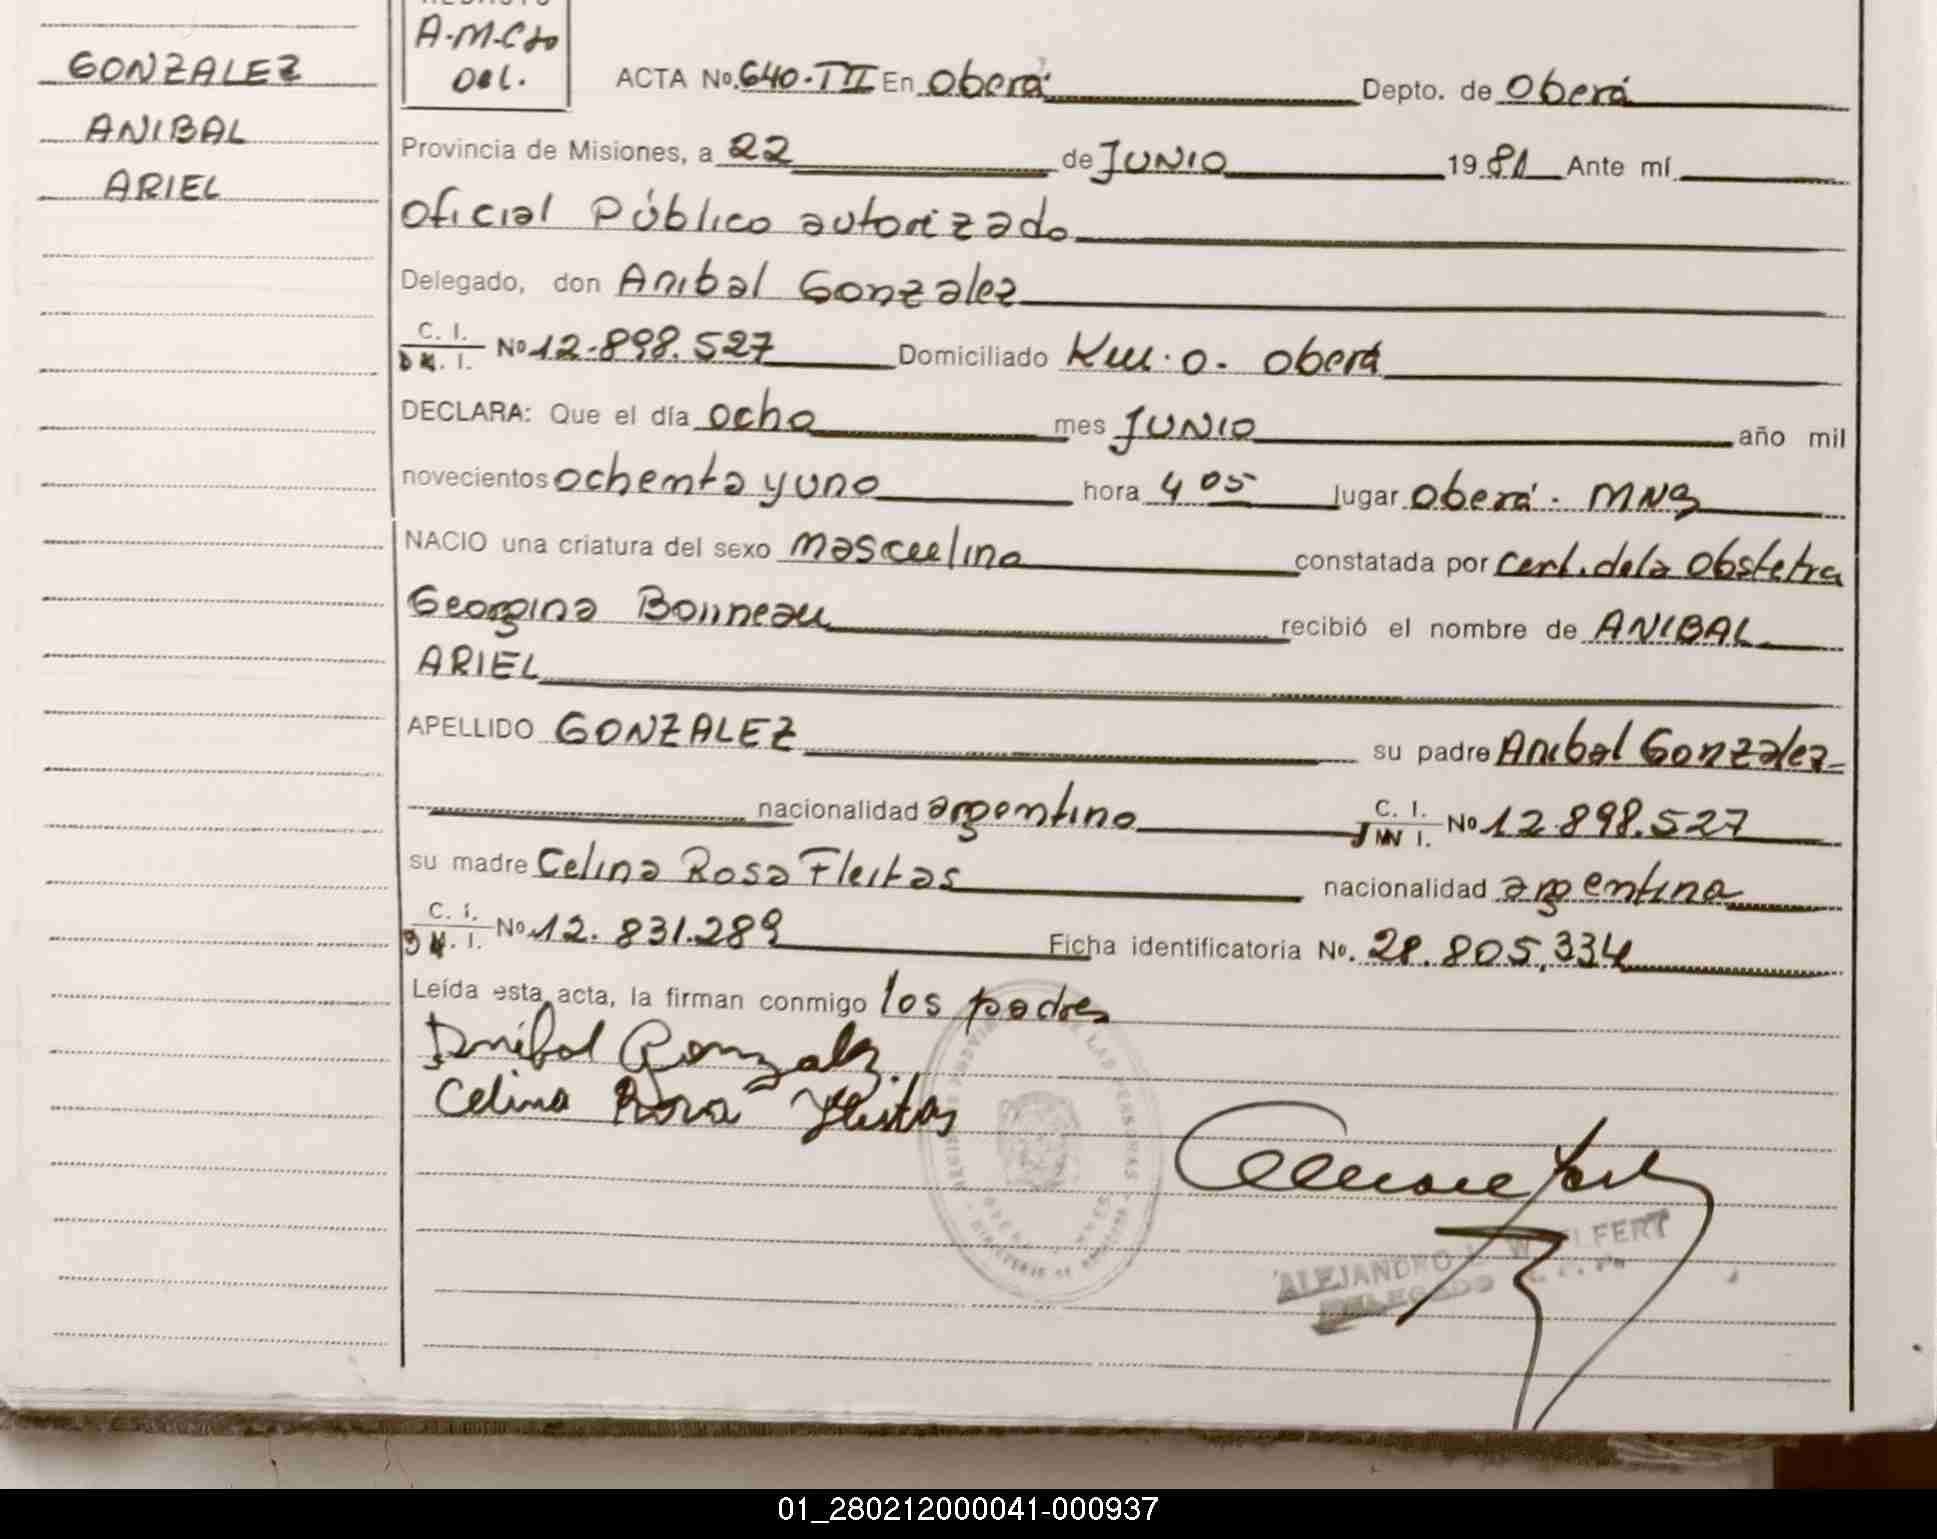 GONZALEZ
ANIBAL
ARIEL
Del.
ACTA Nº 640-TII En Oberá Depto. de Oberá
Provincia de Misiones, a 22 de JUNIO 1981 Ante mí
Oficial Público autorizado
Delegado, don Anibal Gonzalez
C. I. Nº 12.898.527 Domiciliado Km. 0. Oberá
DECLARA: Que el día ocho mes JUNIO año mil
novecientos ochenta y uno hora 4 05 lugar Oberá. MNS
NACIO una criatura del sexo masculino constatada por cert. de la Obstetra
Georgina Bonneau recibió el nombre de ANIBAL
ARIEL
APELLIDO GONZALEZ su padre Anibal Gonzalez
nacionalidad argentino C. I. Nº 12.898.527
su madre Celina Rosa Fleitas nacionalidad argentina
C. I. Nº 12.831.289 Ficha identificatoria Nº. 28.805.334
Leída esta acta, la firman conmigo los padres
Anibal Gonzalez
Celina Rosa Fleitas
ALEJANDRO
DELEGADO
01_280212000041-000937